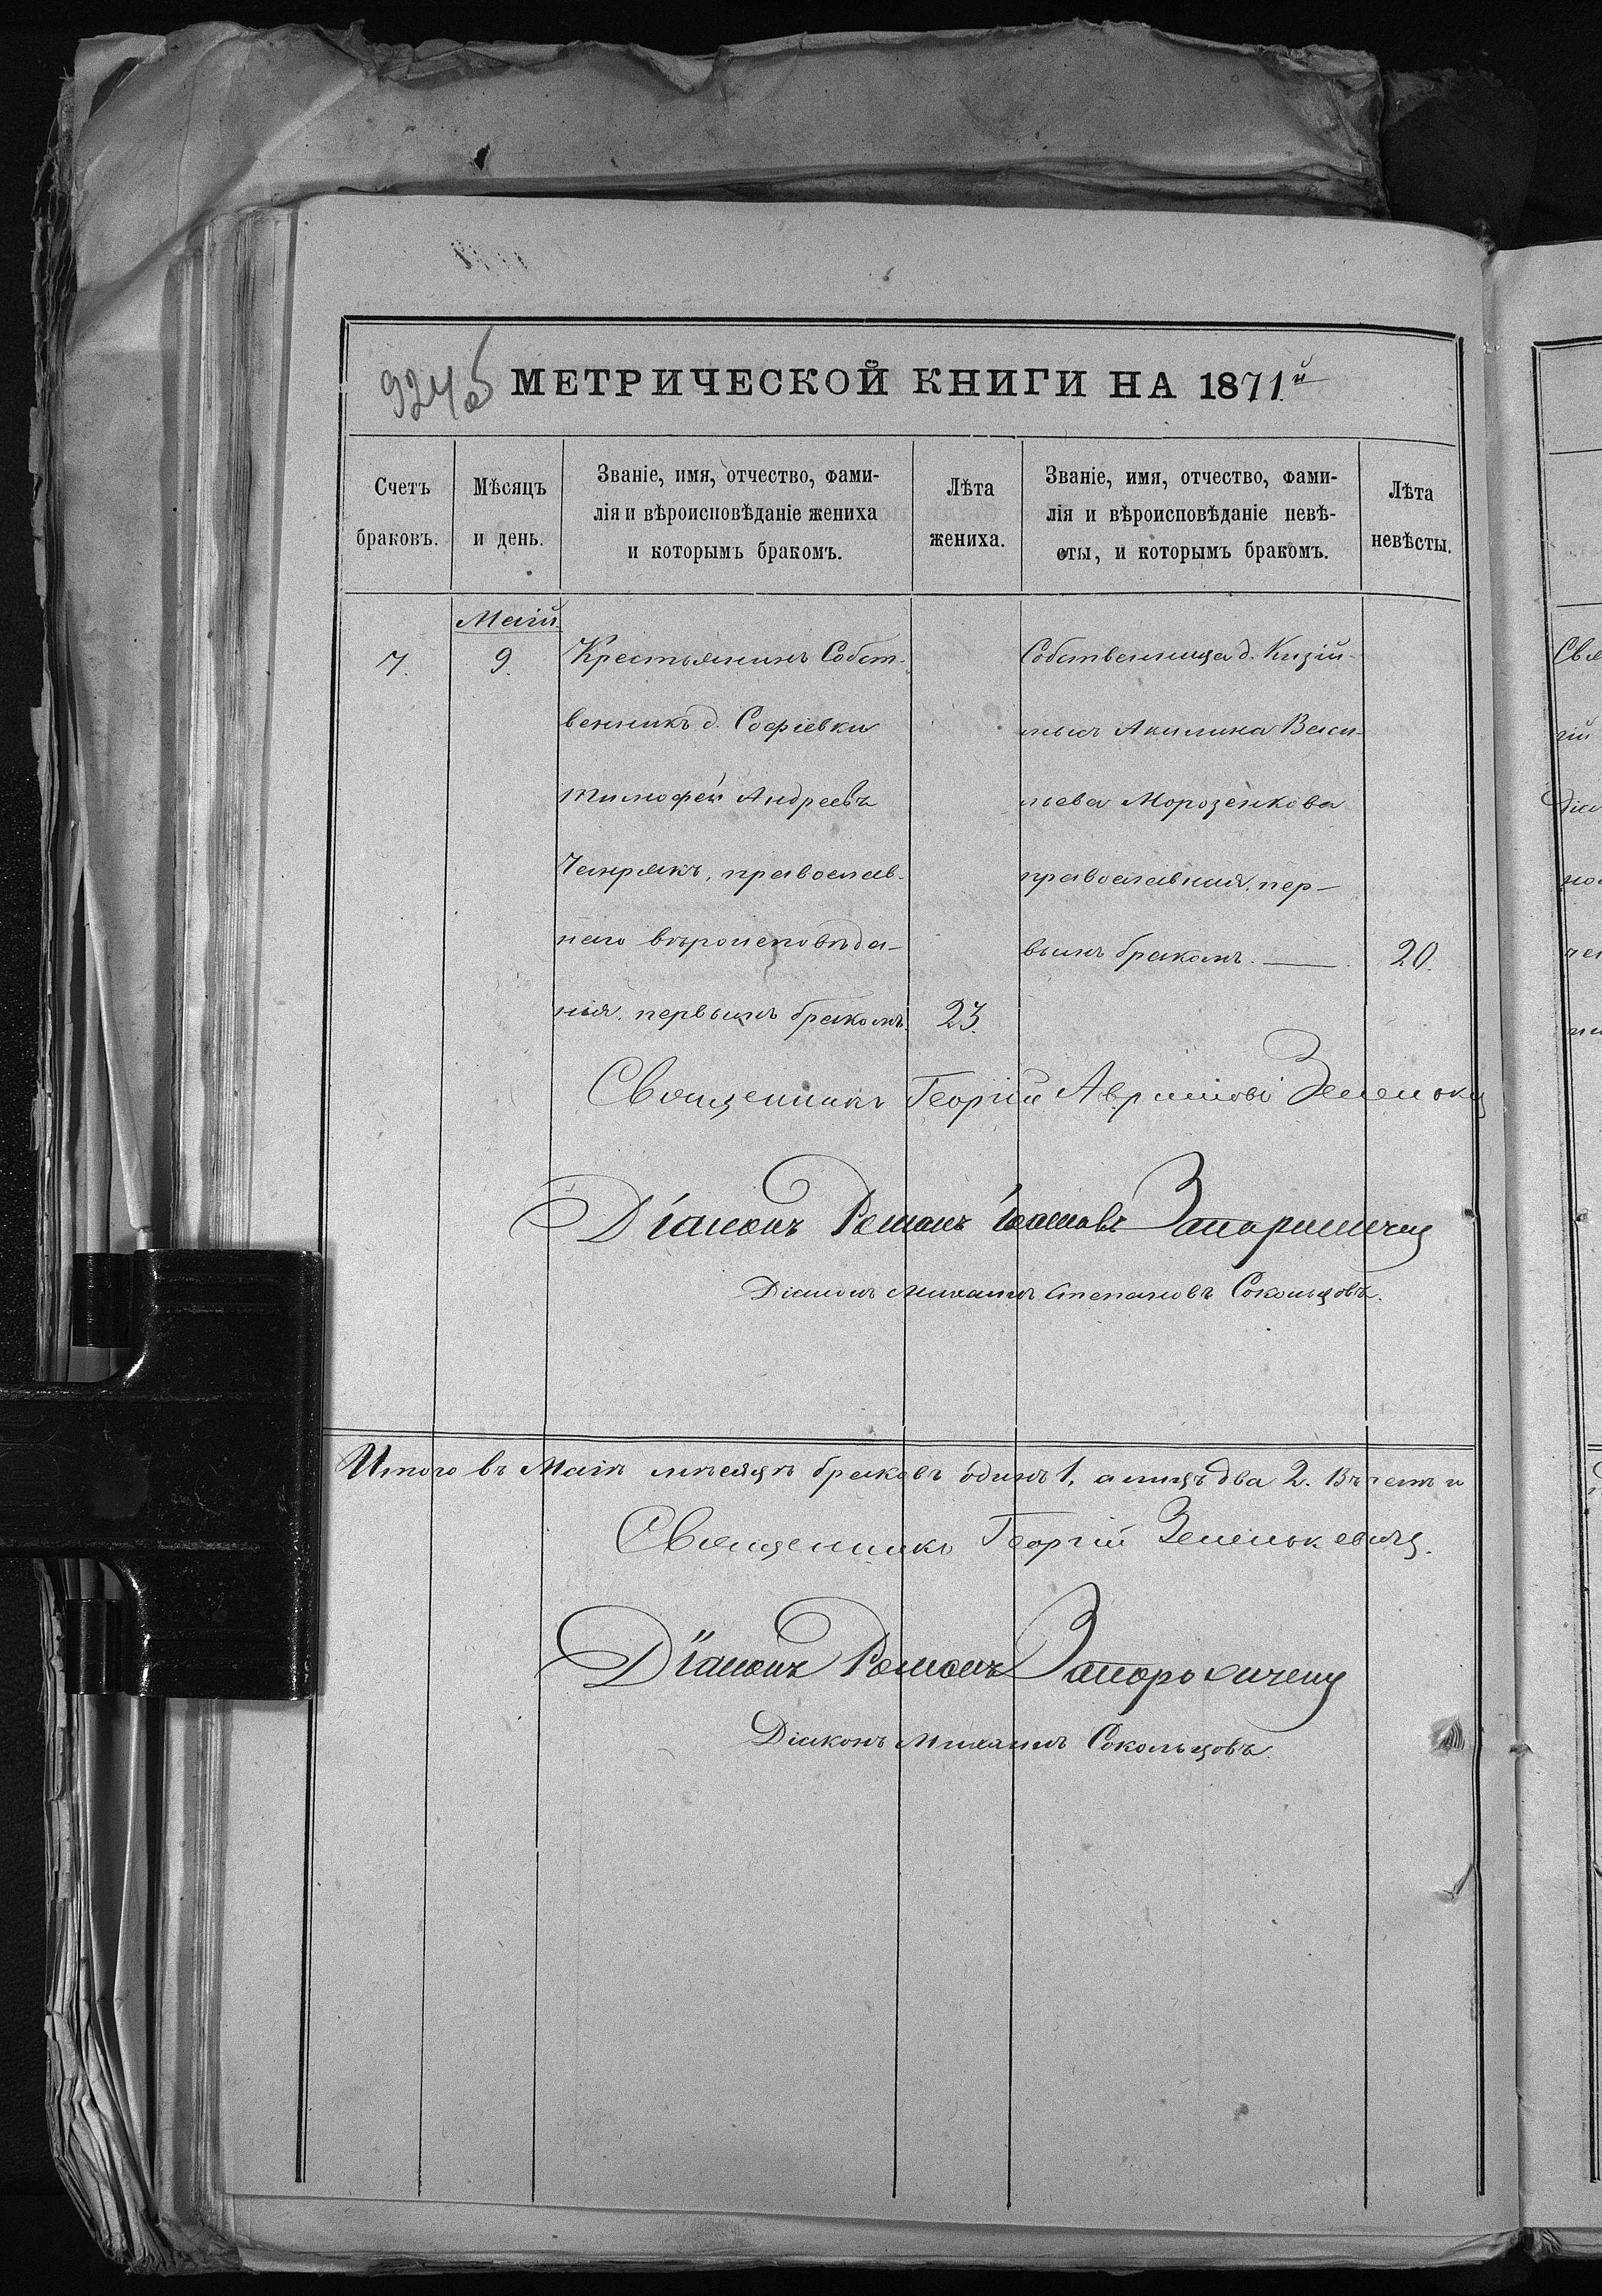 924 об
МЕТРИЧЕСКОЙ КНИГИ НА 1871й
Счетъ браковъ.
Мѣсяцъ и день.
Званіе, имя, отчество, фами-
лія и вѣроисповѣданіе жениха
и которымъ бракомъ.
Лѣта жениха.
Званіе, имя, отчество, фами-
лія и вѣроисповѣданіе невѣ-
сты, и которымъ бракомъ.
Лѣта невѣсты.
Маій
7. 9.
Крестьянинъ Собст-
венникъ д. Софіевки
Тимофей Андреевъ
православ-
наго вѣроисповѣда-
нія. первымъ бракомъ.
23.
Собственница д.
Акилина Васи-
льева Морозенкова
православная. пер-
вымъ бракомъ. —
20.
Священникъ Георгій
Діаконъ Романъ
Діаконъ Михаилъ Степановъ Сокольцовъ.
Итого въ Маіѣ мѣсяцѣ браковъ одинъ 1, а лицъ два 2.
Священникъ Георгій Зеленькевичъ.
Діаконъ Романъ
Діаконъ Михаилъ Сокольцовъ.